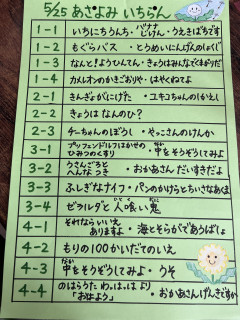 5/25 あさよみ いちらん
1-1 いちにちうんち・バナナじけん・うえきばちです
1-2 もぐらバス・とうめいにんげんのしょくじ
1-3 なんと!ようひんてん・きょうはみんなでくまがりだ
1-4 カメレオンのかきごおりや・はやくねてよ
2-1 きんぎょがにげた・ユキコちゃんのしかえし
2-2 きょうは なんのひ?
2-3 チーちゃんのぼうし・やっこさんのけんか
3-1 プリッフェンドルフはかせの
ひみつのくすり・中をそうぞうしてみよ
3-2 うさんごろと
へんな うさ・おかあさん だいすきだよ
3-3 ふしぎなナイフ・パンのかけらとちいさなあくま
3-4 ゼラルダと人喰い鬼
4-1 それなら いい いえ
ありますよ・海とそらがであうばしょ
4-2 もりの100かいだてのいえ
4-3 中をそうぞうしてみよ・うそ
4-4 のはらうた わっはっは より
「おはよう」・おかあさんげんきですか